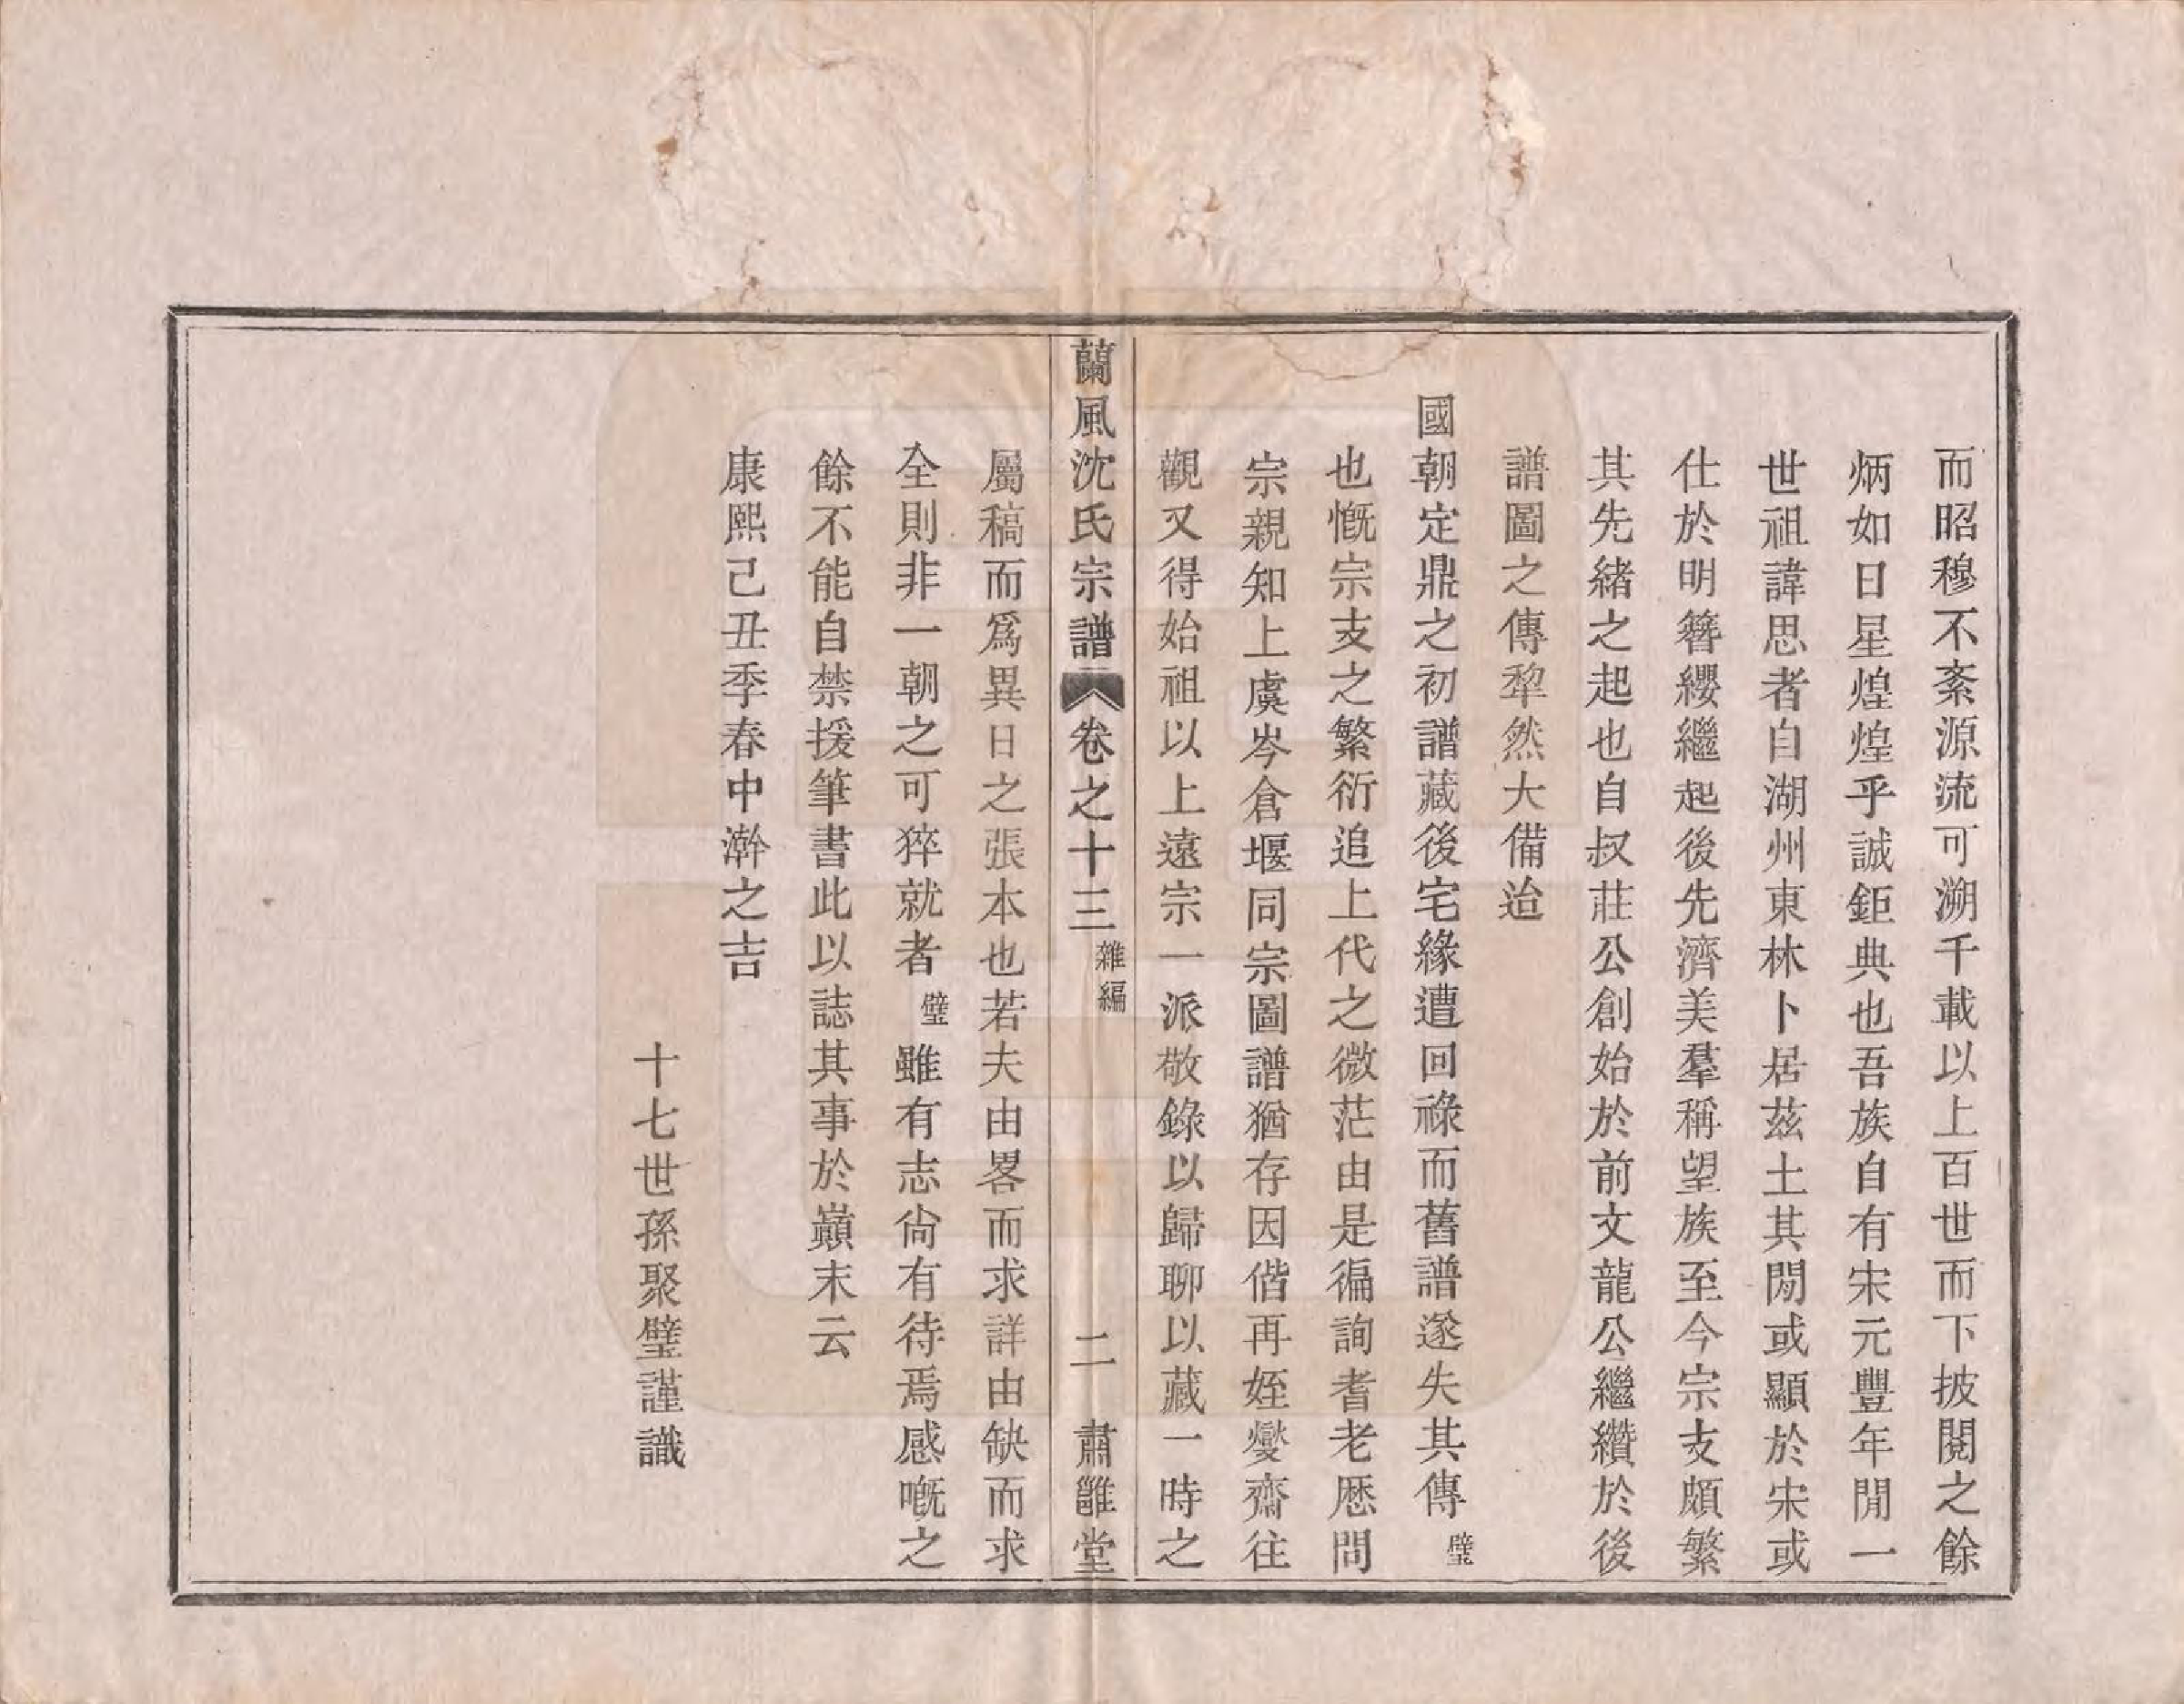 而昭穆不紊源流可溯千載以上百世而下披閱之餘
炳如日星煌煌乎誠鉅典也吾族自有宋元豐年閒一
世祖諱思者自湖州東林卜居茲土其閒或顯於宋或
仕於明簪纓繼起後先濟美羣稱望族至今宗支頗繁
其先緒之起也自叔莊公創始於前文龍公繼纘於後
譜圖之傳犂然大備迨
國朝定鼎之初譜藏後宅緣遭回祿而舊譜遂失其傳璧
也慨宗支之繁衍追上代之微茫由是徧詢耆老歷問
宗親知上虞岑倉堰同宗圖譜猶存因偕再姪燮齋往
觀又得始祖以上遠宗一派敬錄以歸聊以藏一時之
蘭風沈氏宗譜 卷之十三 雜編 二 肅雝堂
屬稿而爲異日之張本也若夫由畧而求詳由缺而求
全則非一朝之可猝就者璧雖有志尙有待焉感嘅之
餘不能自禁援筆書此以誌其事於巔末云
康熙己丑季春中澣之吉
十七世孫聚璧謹識